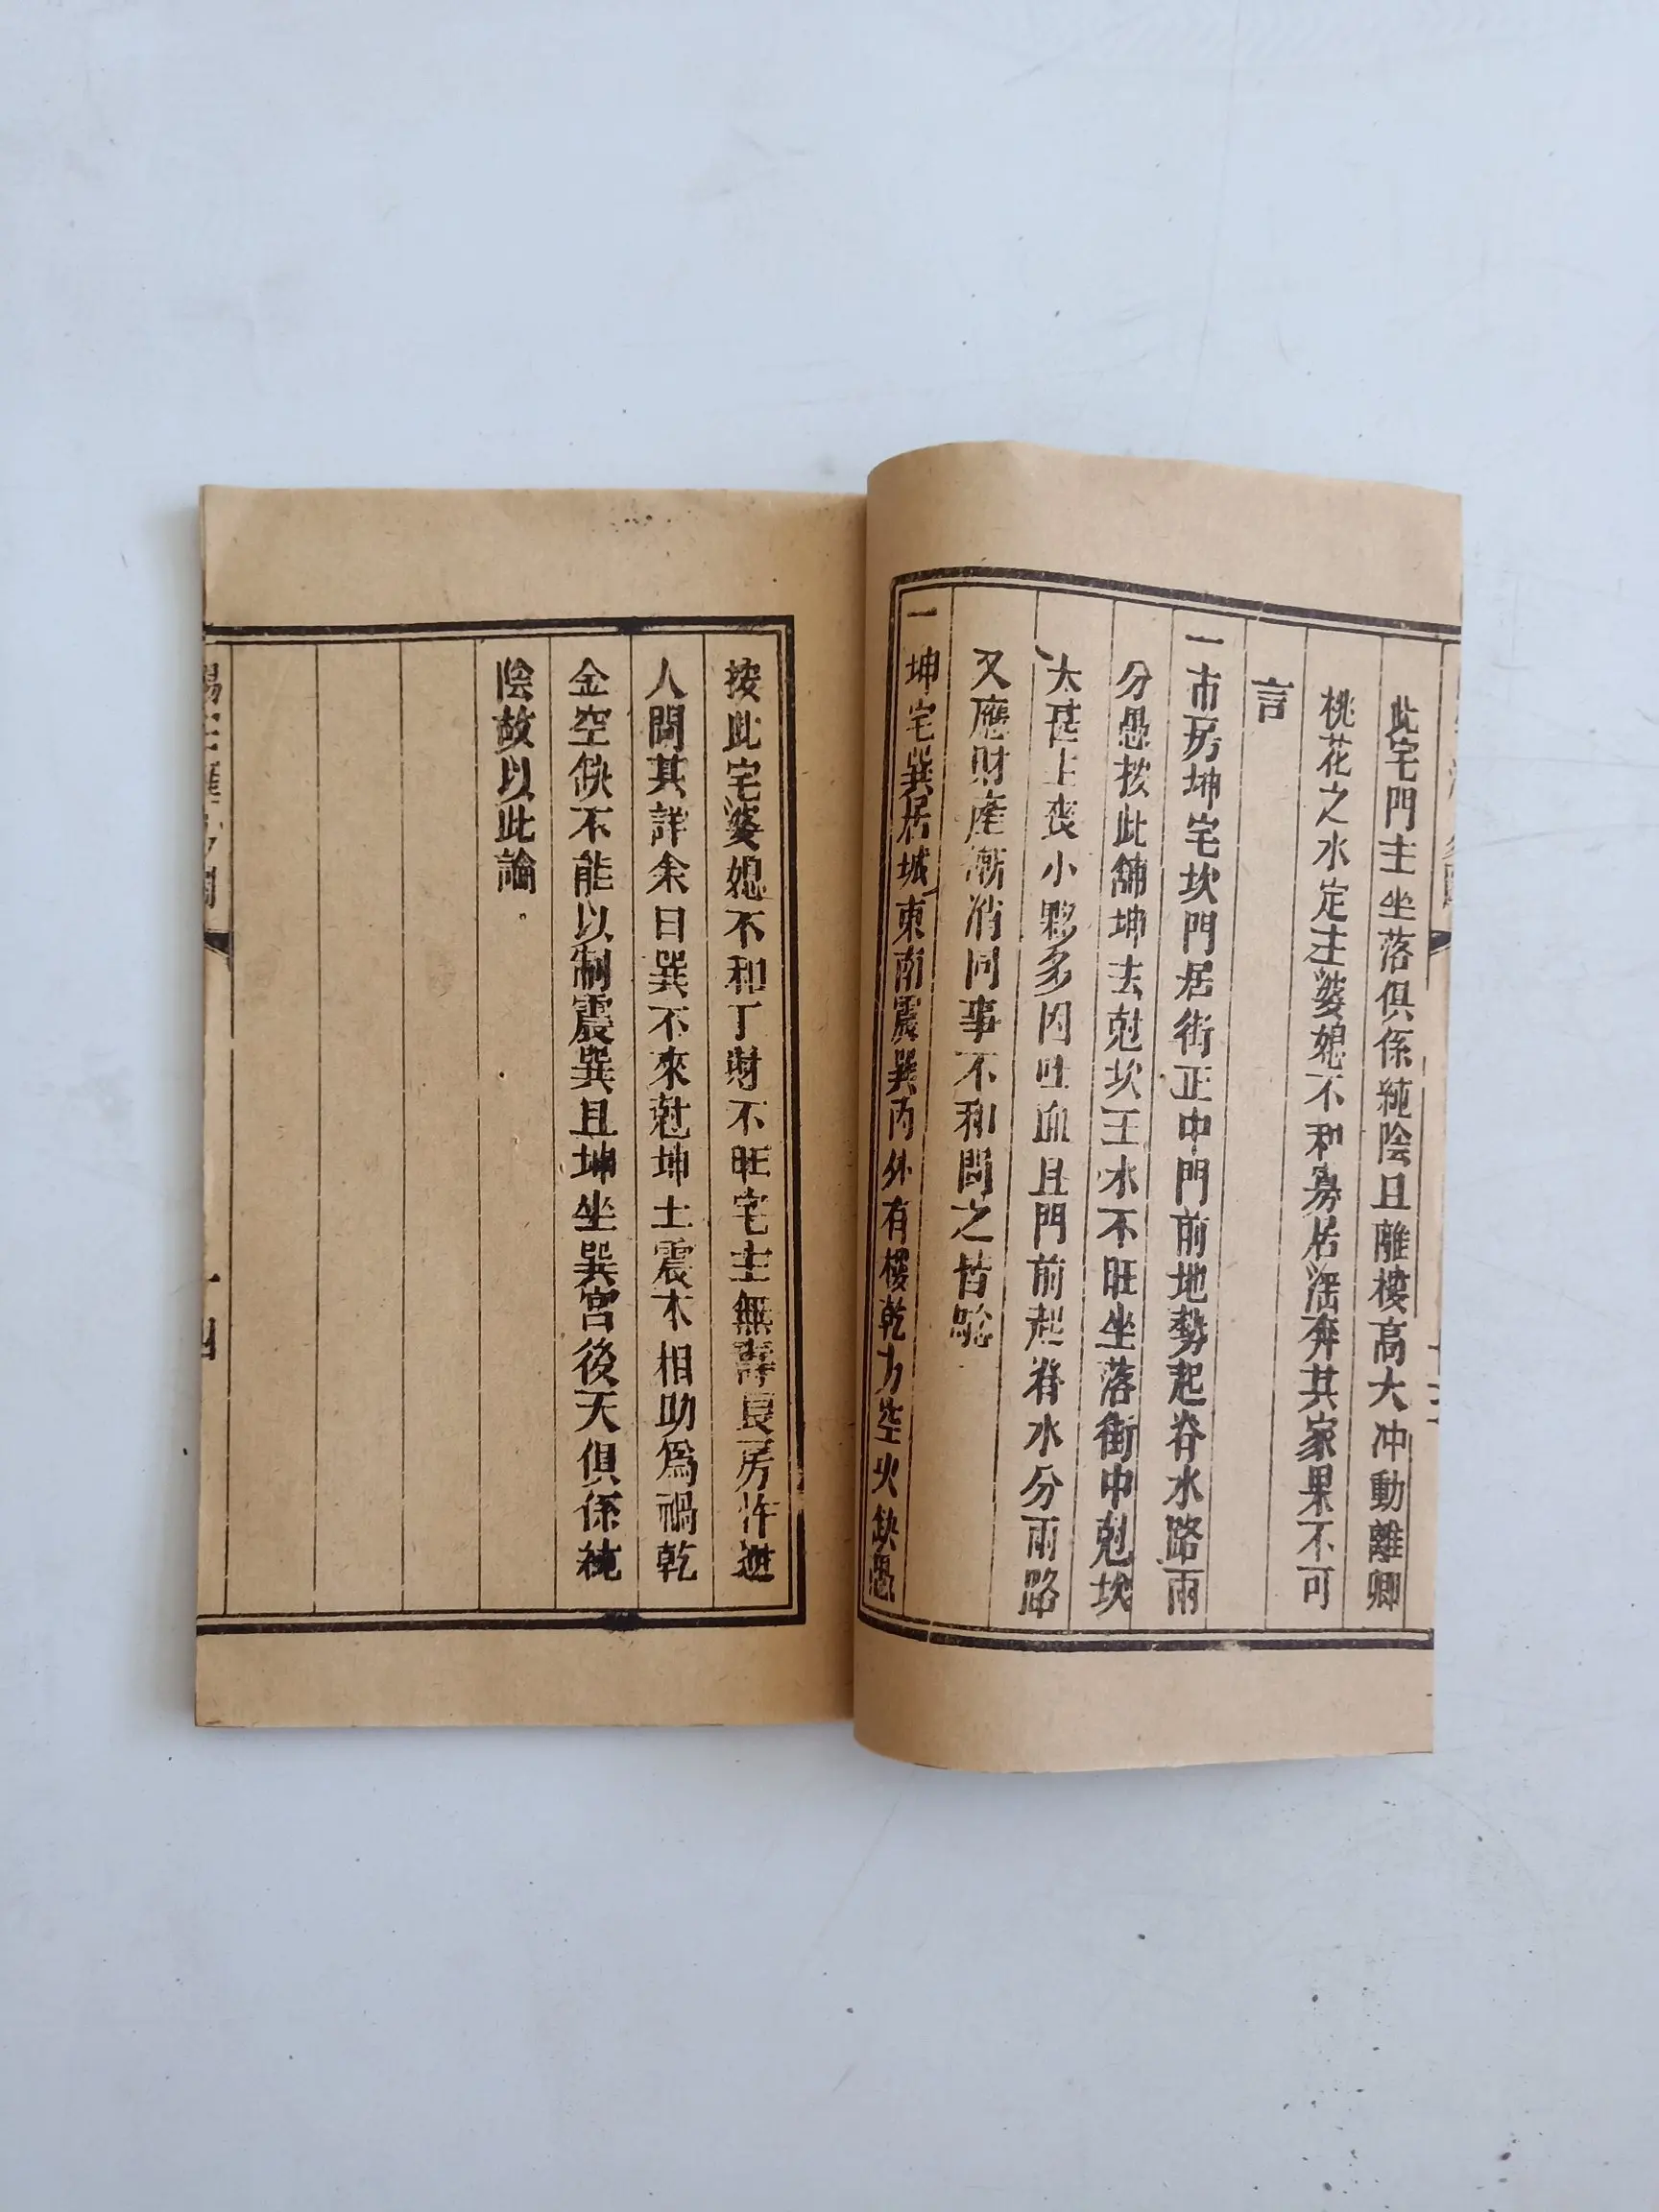 此宅門主坐落俱係純陰且離樓高大冲動離卿
桃花之水定主婆媳不和寡居淫奔其家果不可
言
一市房坤宅坎門居街正中門前地勢起脊水路兩
分愚按此舖坤去尅坎王水不旺坐落街中尅坎
太甚上喪小夥多因吐血且門前起脊水分兩路
又應財產漸消同事不和問之皆驗
一坤宅巽居城東南震巽丙外有樓乾方空火缺愚
按此宅婆媳不和丁財不旺宅主無壽長房忤逆
人問其詳余曰巽不來尅坤土震木相助為禍乾
金空缺不能以制震巽且坤坐巽宮後天俱係純
陰故以此論。